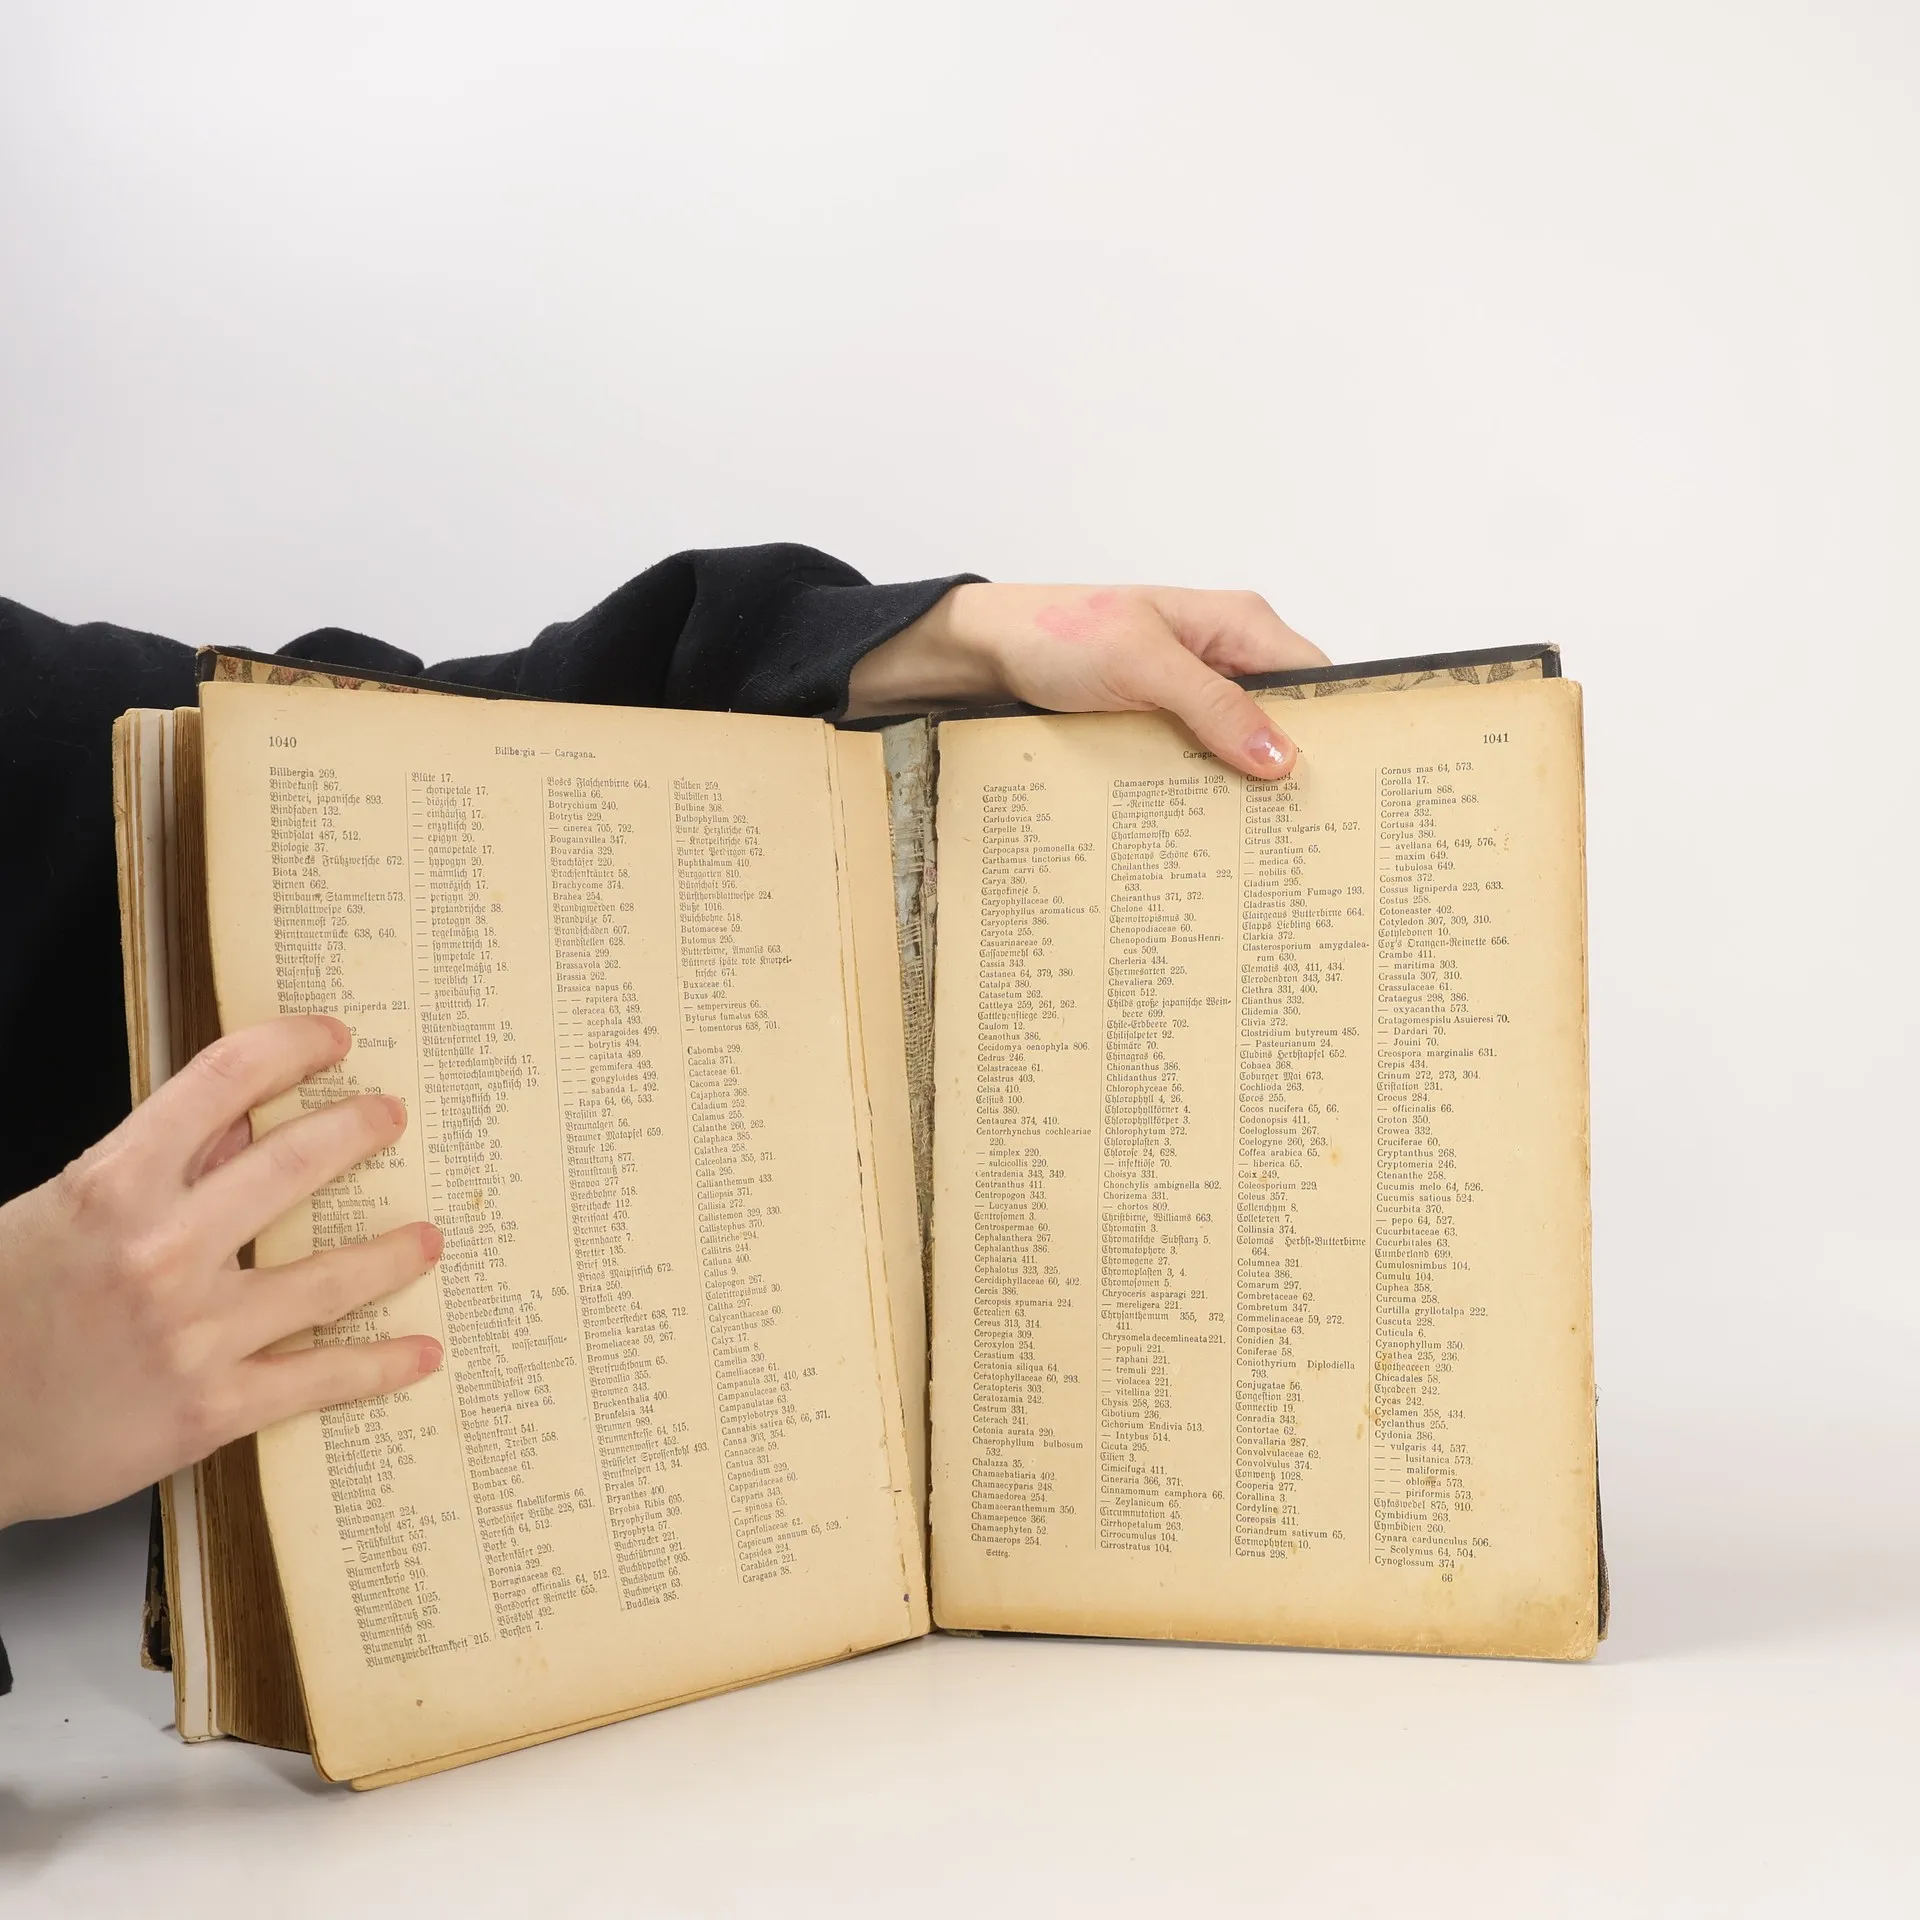 1040
Billbergia — Caragana.
Billbergia 269.
Bindekunst 867.
Binderei, japanische 893.
Bindfaden 132.
Bindigkeit 73.
Bindsalat 487, 512.
Biologie 37.
Biondecks Frühzwetsche 672.
Biota 248.
Birnen 662.
Birnbaum, Stammeltern 573.
Birnblattwespe 639.
Birnenmost 725.
Birntrauermücke 638, 640.
Birnquitte 573.
Bitterstoffe 27.
Blasenfuß 226.
Blasentang 56.
Blastophagen 38.
Blastophagus piniperda 221.
Walnuß-
46.
229.
713.
der Rebe 806.
27.
15.
Blatt, handnervig 14.
Blattkäfer 221.
Blattkissen 17.
8.
Blattspreite 14.
186.
506.
Blausäure 635.
Blausieb 223.
Blechnum 235, 237, 240.
Bleichsellerie 506.
Bleichsucht 24, 628.
Bleidraht 133.
Blendling 68.
Bletia 262.
Blindwanzen 224.
Blumenkohl 487, 494, 551.
— Frühkultur 557.
— Samenbau 697.
Blumenkorb 884.
Blumenkorso 910.
Blumenkrone 17.
Blumenläden 1025.
Blumenstrauß 875.
Blumentisch 898.
Blumenuhr 31.
Blumenzwiebelkrankheit 215.
Blüte 17.
— choripetale 17.
— diözisch 17.
— einhäusig 17.
— enzyklisch 20.
— epigyn 20.
— gamopetale 17.
— hypogyn 20.
— männlich 17.
— monözisch 17.
— perigyn 20.
— protandrische 38.
— protogyn 38.
— regelmäßig 18.
— symmetrisch 18.
— sympetale 17.
— unregelmäßig 18.
— weiblich 17.
— zweihäusig 17.
— zwittrich 17.
Bluten 25.
Blütendiagramm 19.
Blütenformel 19, 20.
Blütenhülle 17.
— heterochlamydeisch 17.
— homoiochlamydeisch 17.
Blütenorgan, azyklisch 19.
— hemizyklisch 19.
— tetrazyklisch 20.
— trizyklisch 20.
— zyklisch 19.
Blütenstände 20.
— botrytisch 20.
— cymöser 21.
— doldentraubig 20.
— racemös 20.
— traubig 20.
Blütenstaub 19.
Blutlaus 225, 639.
Boboligärten 812.
Bocconia 410.
Bockschnitt 773.
Boden 72.
Bodenarten 76.
Bodenbearbeitung 74, 595.
Bodenbedeckung 476.
Bodenfeuchtigkeit 195.
Bodenkohlrabi 499.
Bodenkraft, wasseraufsau-
gende 75.
Bodenkraft, wasserhaltende 75.
Bodenmüdigkeit 215.
Boldmots yellow 683.
Boe heueria nivea 66.
Bohne 517.
Bohnenkraut 541.
Bohnen, Treiben 558.
Boikenapfel 653.
Bombaceae 61.
Bombax 66.
Bora 108.
Borassus flabelliformis 66.
Bordelaiser Brühe 228, 631.
Boretsch 64, 512.
Borke 9.
Borkenkäfer 220.
Boronia 329.
Borraginaceae 62.
Borrago officinalis 64, 512.
Borsdorfer Reinette 655.
Börskohl 492.
Borsten 7.
Boses Flaschenbirne 664.
Boswellia 66.
Botrychium 240.
Botrytis 229.
— cinerea 705, 792.
Bougainvillea 347.
Bouvardia 329.
Brachkäfer 220.
Brachsenkräuter 58.
Brachycome 374.
Brahea 254.
Brandigwerden 628
Brandpilze 57.
Brandschäden 607.
Brandstellen 628.
Brasenia 299.
Brassavola 262.
Brassia 262.
Brassica napus 66.
— — rapifera 533.
— oleracea 63, 489.
— — acephala 493.
— — asparagoides 499.
— — botrytis 494.
— — capitata 489.
— — gemmifera 493.
— — gongyloides 499.
— — sabanda L. 492.
— Rapa 64, 66, 533.
Brasilin 27.
Braunalgen 56.
Brauner Matapfel 659.
Brause 126.
Brautkranz 877.
Brautstrauß 877.
Bravoa 277
Brechbohne 518.
Breithacke 112.
Breitsaat 470.
Brenner 633.
Brennhaare 7.
Bretter 135.
Brief 918.
Briggs Maipfirsich 672.
Briza 250.
Brokkoli 499.
Brombeere 64.
Brombeerstecher 638, 712.
Bromelia karatas 66.
Bromeliaceae 59, 267.
Bromus 250.
Brotfruchtbaum 65.
Browallia 355.
Brownea 343.
Bruckenthalia 400.
Brunfelsia 344.
Brunnen 989.
Brunnenkresse 64, 515.
Brunnenwasser 452.
Brüsseler Sprossenkohl 493.
Brutknospen 13, 34.
Bryales 57.
Bryanthes 400.
Bryobia Ribis 695.
Bryophyllum 309.
Bryophyta 57.
Buchdrucker 221.
Buchführung 921.
Buchhypothek 995.
Buchsbaum 66.
Buchweizen 63.
Buddleia 385.
Bülben 259.
Bulbillen 13.
Bulbine 308.
Bulbophyllum 262.
Bunte Herzkirsche 674.
— Knorpelkirsche 674.
Bunter Perdrigon 672.
Buphthalmum 410.
Burggarten 810.
Bürgschaft 976.
Bürsthornblattwespe 224.
Buße 1016.
Buschbohne 518.
Butomaceae 59.
Butomus 295.
Butterbirne, Amanlis 663.
Büttners späte rote Knorpel-
kirsche 674.
Buxaceae 61.
Buxus 402.
— sempervirens 66.
Byturus fumatus 638.
— tomentorus 638, 701.
Cabomba 299.
Cacalia 371.
Cactaceae 61.
Cacoma 229.
Cajaphora 368.
Caladium 252.
Calamus 255.
Calanthe 260, 262.
Calaphaca 385.
Calathea 258.
Calceolaria 355, 371.
Calla 295.
Callianthemum 433.
Calliopsis 371.
Callisia 272.
Callistemon 329, 330.
Callistephus 370.
Callitriche 294.
Callitris 244.
Calluna 400.
Callus 9.
Calopogon 267.
Calotritopismus 30.
Caltha 297.
Calycanthaceae 60.
Calycanthus 385.
Calyx 17.
Cambium 8.
Camellia 330.
Camelliaceae 61.
Campanula 331, 410, 433.
Campanulaceae 63.
Campanulatae 63.
Campylobotrys 349.
Cannabis sativa 65, 66, 371.
Canna 303, 354.
Cannaceae 59.
Cantua 331.
Capnodium 229.
Capparidaceae 60.
Capparis 343.
— spinosa 65.
Caprificus 38.
Caprifoliaceae 62.
Capsicum annuum 65, 529.
Capsidea 224.
Carabiden 221.
Caragana 38.
1041
Caraguata 268.
Cardy 506.
Carex 295.
Carludovica 255.
Carpelle 19.
Carpinus 379.
Carpocapsa pomonella 632.
Carthamus tinctorius 66.
Carum carvi 65.
Carya 380.
Caryokinese 5.
Caryophyllaceae 60.
Caryophyllus aromaticus 65.
Caryopteris 386.
Caryota 255.
Casuarinaceae 59.
Cassavemehl 63.
Cassia 343.
Castanea 64, 379, 380.
Catalpa 380.
Catasetum 262.
Cattleya 259, 261, 262.
Cattleyenfliege 226.
Caulom 12.
Ceanothus 386.
Cecidomya oenophyla 806.
Cedrus 246.
Celastraceae 61.
Celastrus 403.
Celsia 410.
Celsius 100.
Celtis 380.
Centaurea 374, 410.
Centorrhynchus cochleariae
220.
— simplex 220.
— sulcicollis 220.
Centradenia 343, 349.
Centranthus 411.
Centropogon 343.
— Lucyanus 200.
Centrosomen 3.
Centrospermae 60.
Cephalanthera 267.
Cephalanthus 386.
Cephalaria 411.
Cephalotus 323, 325.
Cercidiphyllaceae 60, 402.
Cercis 386.
Cercopsis spumaria 224.
Cerealien 63.
Cereus 313, 314.
Ceropegia 309.
Ceroxylon 254.
Cerastium 433.
Ceratonia siliqua 64.
Ceratophyllaceae 60, 293.
Ceratopteris 303.
Ceratozamia 242.
Cestrum 331.
Ceterach 241.
Cetonia aurata 220.
Chaerophyllum bulbosum
532.
Chalazza 35.
Chamaebatiaria 402.
Chamaecyparis 248.
Chamaedorea 254.
Chamaeranthemum 350.
Chamaepeuce 366.
Chamaephyten 52.
Chamaerops 254.
Chamaerops humilis 1029.
Champagner-Bratbirne 670.
— -Reinette 654.
Champignonzucht 563.
Chara 293.
Charlamowsky 652.
Charophyta 56.
Chatenays Schöne 676.
Cheilanthes 239.
Cheimatobia brumata 222,
633.
Cheiranthus 371, 372.
Chelone 411.
Chemotropismus 30.
Chenopodiaceae 60.
Chenopodium Bonus Henri-
cus 509.
Cherleria 434.
Chermesarten 225.
Chevaliera 269.
Chicon 512.
Childs große japanische Wein-
beere 699.
Chile-Erdbeere 702.
Chilisalpeter 92.
Chimäre 70.
Chinagras 66.
Chionanthus 386.
Chlidanthus 277.
Chlorophyceae 56.
Chlorophyll 4, 26.
Chlorophyllkörner 4.
Chlorophyllkörper 3.
Chlorophytum 272.
Chloroplasten 3.
Chlorose 24, 628.
— infektiöse 70.
Choisya 331.
Chonchylis ambignella 802.
Chorizema 331.
— chortos 809.
Christbirne, Williams 663.
Chromatin 3.
Chromatische Substanz 5.
Chromatophore 3.
Chromogene 27.
Chromoplasten 3, 4.
Chromosomen 5.
Chryoceris asparagi 221.
— mereligera 221.
Chrysanthemum 355, 372,
411.
Chrysomela decemlineata 221.
— populi 221.
— raphani 221.
— tremuli 221.
— violacea 221.
— vitellina 221.
Chysis 258, 263.
Cibotium 236.
Cichorium Endivia 513.
— Intybus 514.
Cicuta 295.
Cilien 3.
Cimicifuga 411.
Cineraria 366, 371.
Cinnamomum camphora 66.
— Zeylanicum 65.
Circummutation 45.
Cirrhopetalum 263.
Cirrocumulus 104.
Cirrostratus 104.
Cirsium 434.
Cissus 350.
Cistaceae 61.
Cistus 331.
Citrullus vulgaris 64, 527.
Citrus 331.
— aurantium 65.
— medica 65.
— nobilis 65.
Cladium 295.
Cladosporium Fumago 193.
Cladrastis 380.
Clairgeaus Butterbirne 664.
Clapps Liebling 663.
Clarkia 372.
Clasterosporium amygdalea-
rum 630.
Clematis 403, 411, 434.
Clerodendron 343, 347.
Clethra 331, 400.
Clianthus 332.
Clidemia 350.
Clivia 272.
Clostridium butyreum 485.
— Pasteurianum 24.
Cludius Herbstapfel 652.
Cobaea 368.
Coburger Mai 673.
Cochlioda 263.
Cocos 255.
Cocos nucifera 65, 66.
Codonopsis 411.
Coeloglossum 267.
Coelogyne 260, 263.
Coffea arabica 65.
— liberica 65.
Coix 249.
Coleosporium 229.
Coleus 357.
Collenchym 8.
Colleteren 7.
Collinsia 374.
Colomas Herbst-Butterbirne
664.
Columnea 321.
Colutea 386.
Comarum 297.
Combretaceae 62.
Combretum 347.
Commelinaceae 59, 272.
Compositae 63.
Conidien 34.
Coniferae 58.
Coniothyrium Diplodiella
793.
Conjugatae 56.
Congestion 231.
Connectiv 19.
Conradia 343.
Contortae 62.
Convallaria 287.
Convolvulaceae 62.
Convolvulus 374.
Conwentz 1028.
Cooperia 277.
Corallina 3.
Cordyline 271.
Coreopsis 411.
Coriandrum sativum 65.
Cormophyten 10.
Cornus 298.
Cornus mas 64, 573.
Corolla 17.
Corollarium 868.
Corona graminea 868.
Correa 332.
Cortusa 434.
Corylus 380.
— avellana 64, 649, 576,
— maxim 649.
— tubulosa 649.
Cosmos 372.
Cossus ligniperda 223, 633.
Costus 258.
Cotoneaster 402.
Cotyledon 307, 309, 310.
Cotyledonen 10.
Cox's Orangen-Reinette 656.
Crambe 411.
— maritima 303.
Crassula 307, 310.
Crassulaceae 61.
Crataegus 298, 386.
— oxyacantha 573.
Cratagomespilu Asuieresi 70.
— Dardari 70.
— Jouini 70.
Creospora marginalis 631.
Crepis 434.
Crinum 272, 273, 304.
Cristation 231.
Crocus 284.
— officinalis 66.
Croton 350.
Crowea 332.
Cruciferae 60.
Cryptanthus 268.
Cryptomeria 246.
Ctenanthe 258.
Cucumis melo 64, 526.
Cucumis satious 524.
Cucurbita 370.
— pepo 64, 527.
Cucurbitaceae 63.
Cucurbitales 63.
Cumberland 699.
Cumulosnimbus 104.
Cumulu 104.
Cuphea 358.
Curcuma 258.
Curtilla gryllotalpa 222.
Cuscuta 228.
Cuticula 6.
Cyanophyllum 350.
Cyathea 235, 236.
Cyatheaceen 230.
Chicadales 58.
Cycadeen 242.
Cycas 242.
Cyclamen 358, 434.
Cyclanthus 255.
Cydonia 386.
— vulgaris 44, 537.
— — lusitanica 573.
— — maliformis.
— — oblonga 573.
— — piriformis 573.
Cykaswedel 875, 910.
Cymbidium 263.
Cymbidien 260.
Cynara cardunculus 506.
— Scolymus 64, 504.
Cynoglossum 374
66